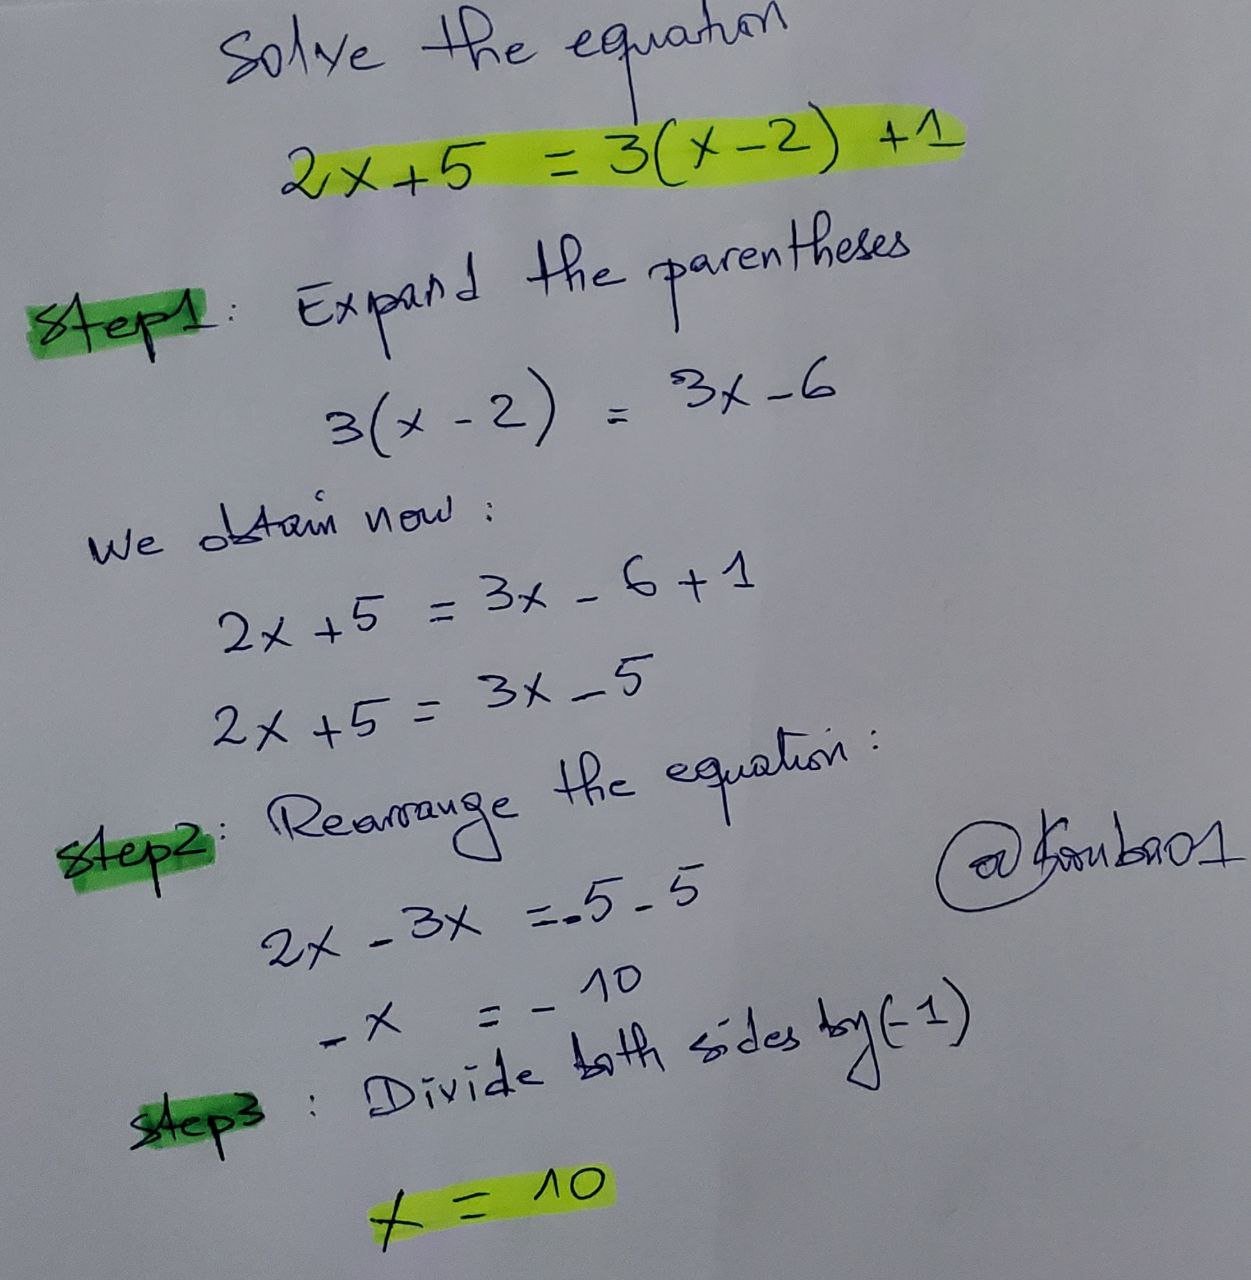 Solve the equation
2x+5 = 3(x-2) +1
Step1: Expand the parentheses
3(x-2) = 3x-6
We obtain now:
2x+5 = 3x-6+1
2x+5 = 3x-5
Step2: Rearrange the equation:
2x-3x =-5-5
-x = -10
Step3: Divide both sides by(-1)
x = 10